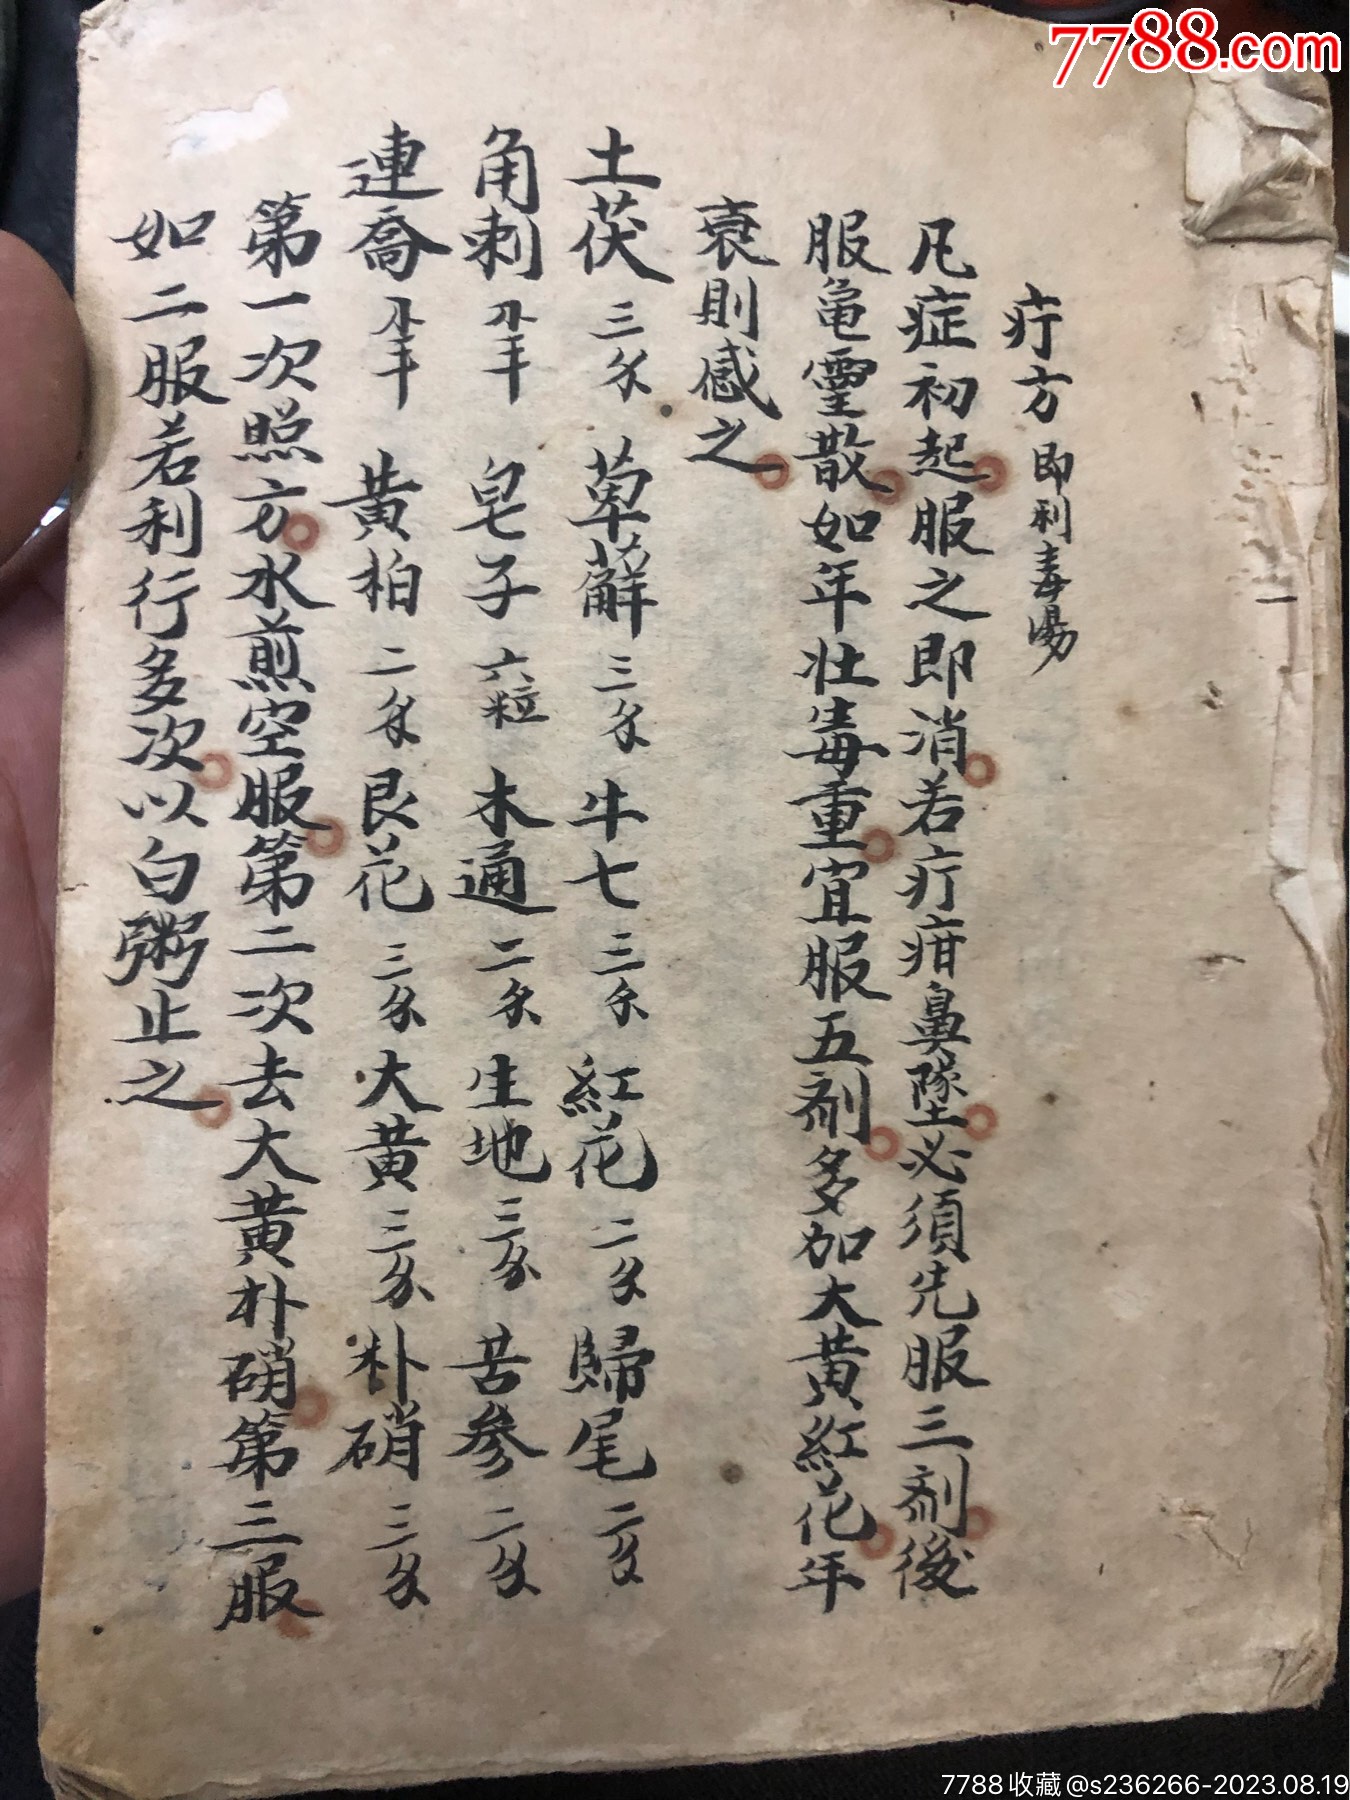 7788.com
疔方 即利毒湯
凡症初起服之即消若疔疳鼻墜必須先服三劑後
服龜靈散如年壯毒重宜服五劑多加大黃紅花年
衰則减之
土茯 三錢 萆薢 三錢 牛七 三錢 紅花 二錢 歸尾 二錢
角刺 錢半 皂子 六粒 木通 二錢 生地 三錢 苦參 二錢
連喬 錢半 黃柏 二錢 艮花 三錢 大黃 三錢 朴硝 三錢
第一次照方水煎空服第二次去大黃朴硝第三服
如二服若利行多次以白粥止之
7788收藏@s236266-2023.08.19